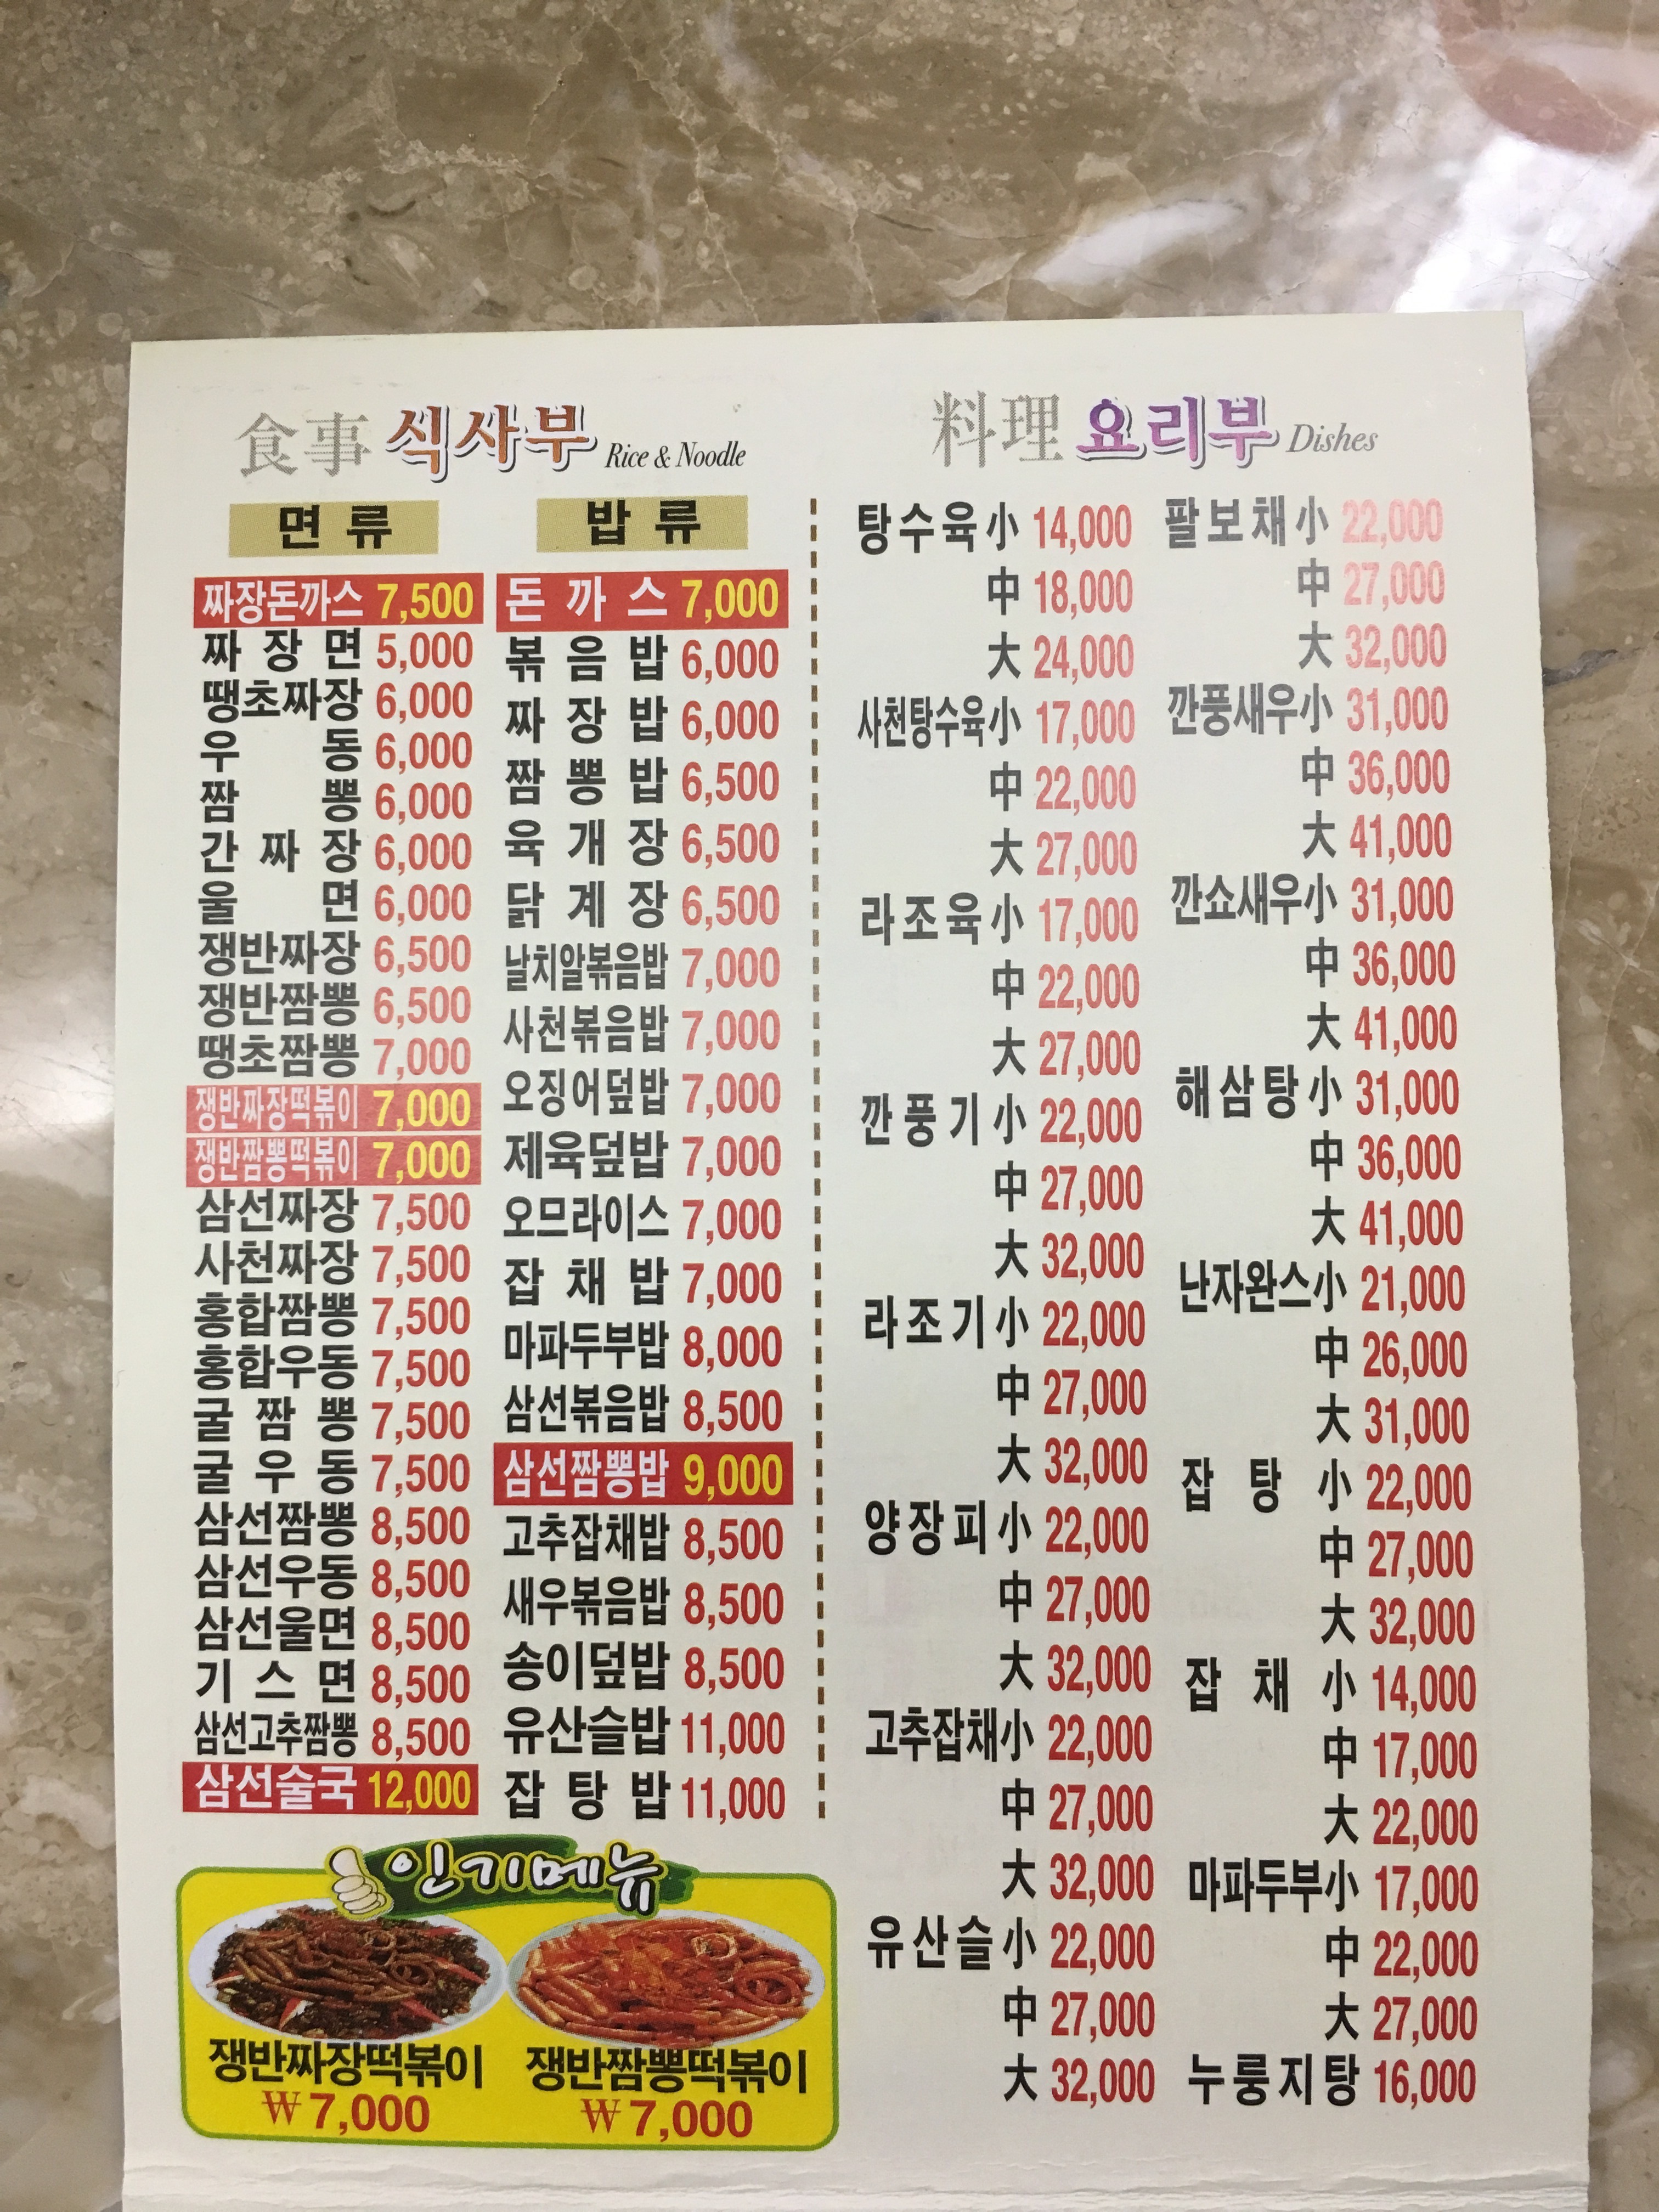 食事 식사부 Rice & Noodle
면류
짜장돈까스 7,500
짜장면 5,000
땡초짜장 6,000
우동 6,000
짬뽕 6,000
간짜장 6,000
울면 6,000
쟁반짜장 6,500
쟁반짬뽕 6,500
땡초짬뽕 7,000
쟁반짜장떡볶이 7,000
쟁반짬뽕떡볶이 7,000
삼선짜장 7,500
사천짜장 7,500
홍합짬뽕 7,500
홍합우동 7,500
굴짬뽕 7,500
굴우동 7,500
삼선짬뽕 8,500
삼선우동 8,500
삼선울면 8,500
기스면 8,500
삼선고추짬뽕 8,500
삼선술국 12,000
밥류
돈까스 7,000
볶음밥 6,000
짜장밥 6,000
짬뽕밥 6,500
육개장 6,500
닭계장 6,500
날치알볶음밥 7,000
사천볶음밥 7,000
오징어덮밥 7,000
제육덮밥 7,000
오므라이스 7,000
잡채밥 7,000
마파두부밥 8,000
삼선볶음밥 8,500
삼선짬뽕밥 9,000
고추잡채밥 8,500
새우볶음밥 8,500
송이덮밥 8,500
유산슬밥 11,000
잡탕밥 11,000
인기메뉴
쟁반짜장떡볶이
₩7,000
쟁반짬뽕떡볶이
₩7,000
料理 요리부 Dishes
탕수육 小 14,000
中 18,000
大 24,000
사천탕수육 小 17,000
中 22,000
大 27,000
라조육 小 17,000
中 22,000
大 27,000
깐풍기 小 22,000
中 27,000
大 32,000
라조기 小 22,000
中 27,000
大 32,000
양장피 小 22,000
中 27,000
大 32,000
고추잡채 小 22,000
中 27,000
大 32,000
유산슬 小 22,000
中 27,000
大 32,000
팔보채 小 22,000
中 27,000
大 32,000
깐풍새우 小 31,000
中 36,000
大 41,000
깐쇼새우 小 31,000
中 36,000
大 41,000
해삼탕 小 31,000
中 36,000
大 41,000
난자완스 小 21,000
中 26,000
大 31,000
잡탕 小 22,000
中 27,000
大 32,000
잡채 小 14,000
中 17,000
大 22,000
마파두부 小 17,000
中 22,000
大 27,000
누룽지탕 16,000